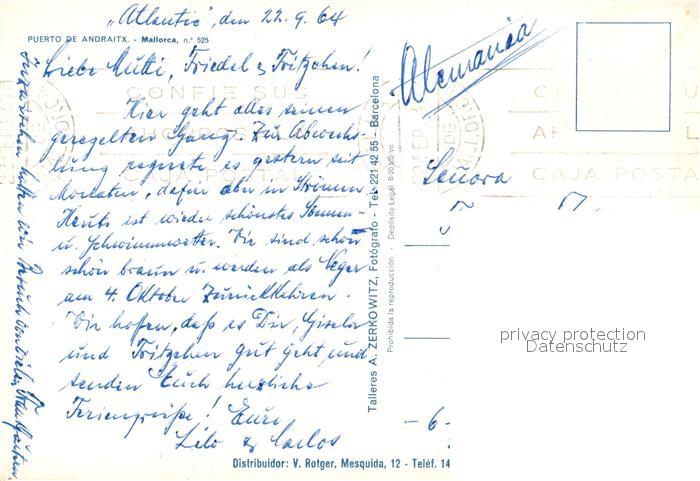 „Atlantic", den 22.9.64
PUERTO DE ANDRAITX. - Mallorca, n.° 525
Liebe Mutti, Friedel & Fritzchen!
Hier geht alles seinen
geregelten Gang. Zur Abwechs-
lung regnete es gestern seit
Monaten, dafür aber in Strömen.
Heute ist wieder schönstes Sonnen-
u. Schwimmwetter. Wir sind schon
schön braun u. werden als Neger
am 4. Oktober zurückkehren.
Wir hoffen, daß es Dir, Gisela
und Fritzchen gut geht, und
senden Euch herzliche
Feriengrüße! Eure
Lilo & Carlos
Inzwischen hatten wir Besuch
Talleres A. ZERKOWITZ, Fotógrafo - Tel. 221 42 55 - Barcelona
Prohibida la reproducción - Depósito Legal B 20.502-VII
Alemania
CONFIE SUS
CAJA POSTAL
CAJA POSTA
Senora
- 6 -
privacy protection
Datenschutz
Distribuidor: V. Rotger, Mesquida, 12 - Teléf. 14